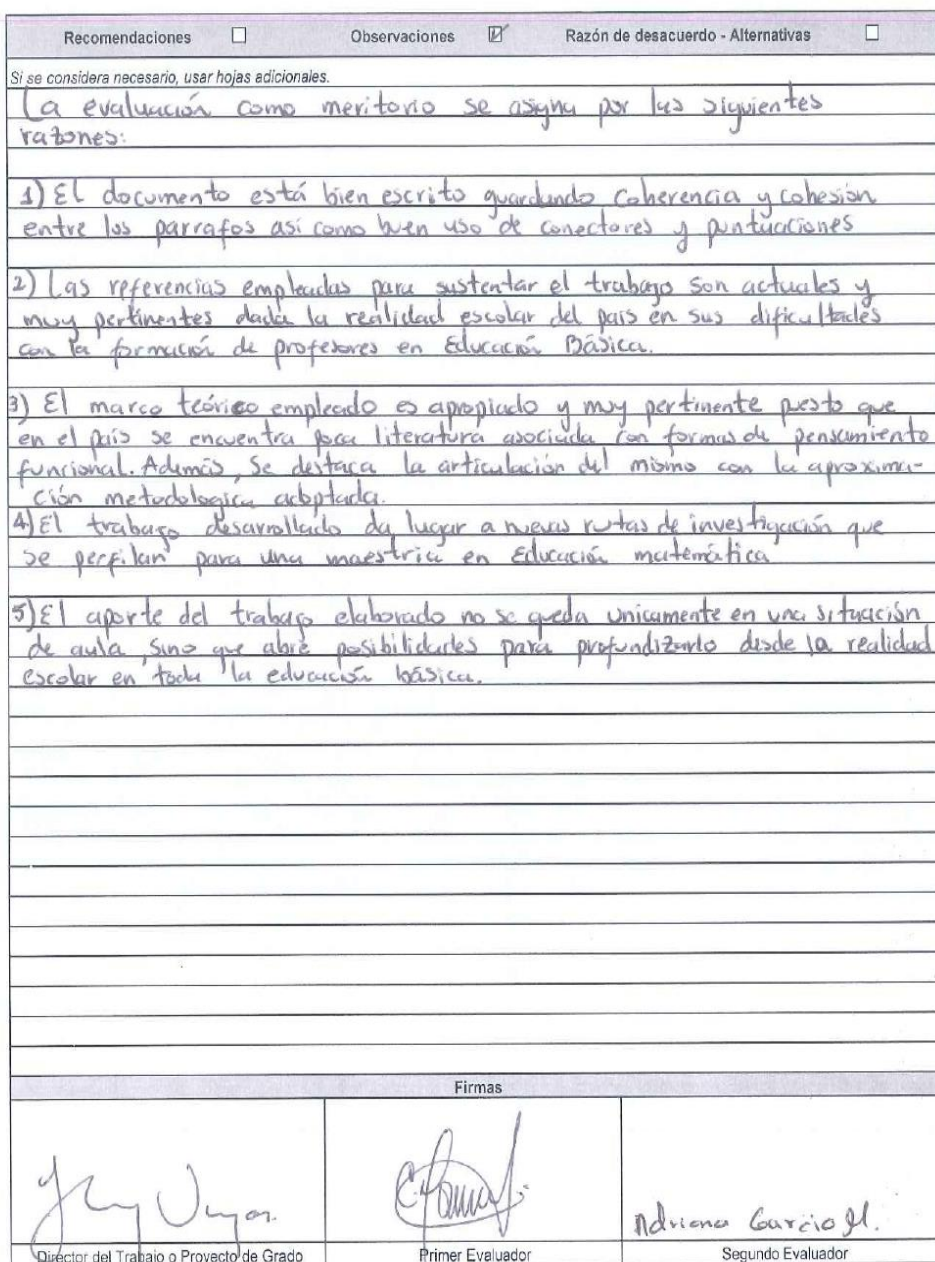 Recomendaciones ☐ Observaciones ☑ Razón de desacuerdo - Alternativas ☐
Si se considera necesario, usar hojas adicionales.
La evaluación como meritorio se asigna por las siguientes
razones:
1) El documento está bien escrito guardando coherencia y cohesión
entre los parrafos así como buen uso de conectores y puntuaciones
2) Las referencias empleadas para sustentar el trabajo son actuales y
muy pertinentes dada la realidad escolar del país en sus dificultades
con la formación de profesores en Educación Básica.
3) El marco teórico empleado es apropiado y muy pertinente puesto que
en el país se encuentra poca literatura asociada con formas de pensamiento
funcional. Además, se destaca la articulación del mismo con la aproxima-
ción metodologica adoptada.
4) El trabajo desarrollado da lugar a nuevas rutas de investigación que
se perfilan para una maestría en Educación matemática
5) El aporte del trabajo elaborado no se queda unicamente en una situación
de aula, sino que abre posibilidades para profundizarlo desde la realidad
escolar en toda la educación básica.
Firmas
Adriana García M.
Director del Trabajo o Proyecto de Grado Primer Evaluador Segundo Evaluador